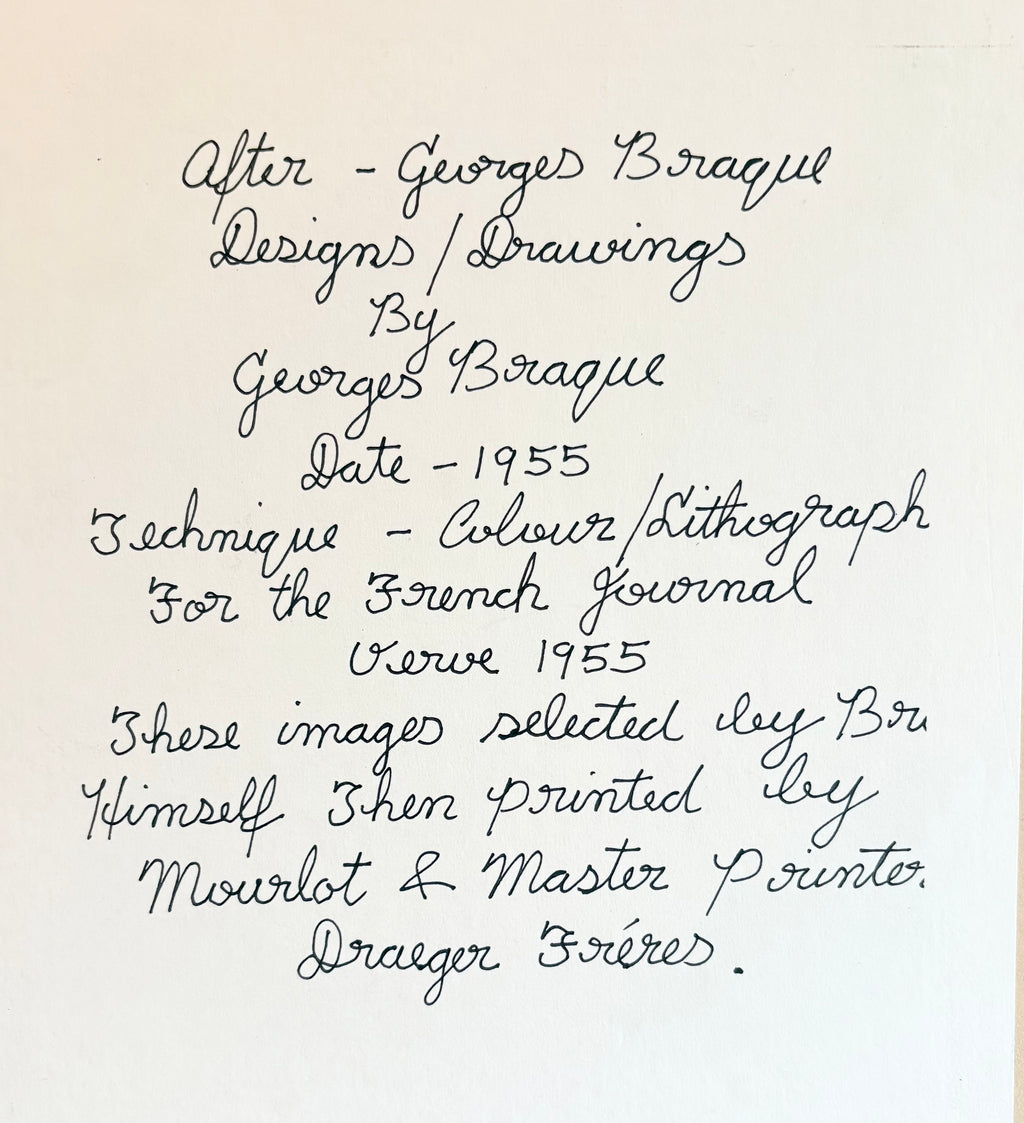 After - Georges Braque
Designs / Drawings
By
Georges Braque
Date - 1955
Technique - Colour/Lithograph
For the French Journal
Verve 1955
These images selected by
Himself Then printed by
Mourlot & Master
Draeger Fréres.